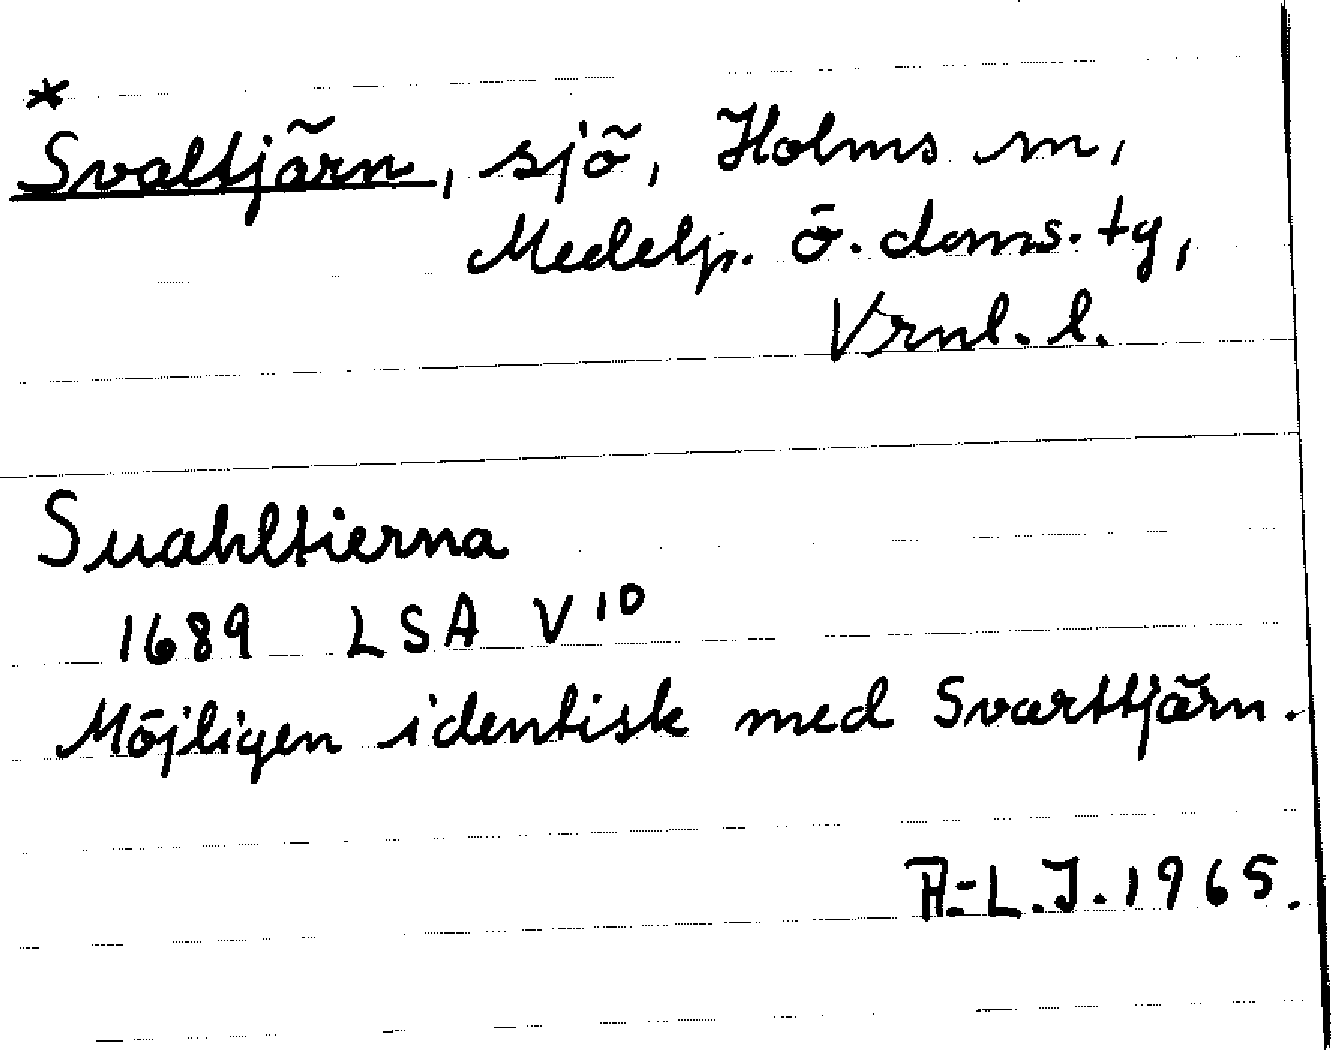 *
Svaltjärn, sjö, Holms sn,
Medelp. ö. doms. tg,
Vrnl. l.
Suahltierna
1689 LSA V 10
Möjligen identisk med Svarttjärn.
A-L.J. 1965.